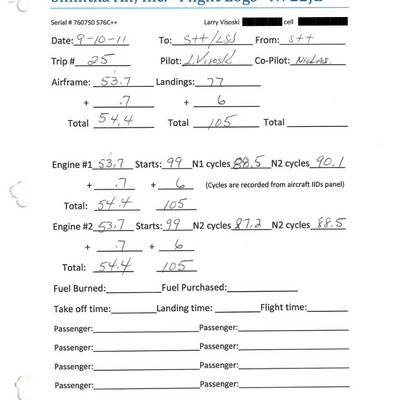 Air, Inc. Flight Logs
Serial # 760750 S76C++ Larry Visoski cell
Date: 9-10-11 To: STT/LSJ From: STT
Trip # 25 Pilot: L.Visoski Co-Pilot: Nicklas.
Airframe: 53.7 Landings: 99
+ .7 + 6
Total 54.4 Total 105 Total
Engine #1 53.7 Starts: 99 N1 cycles 88.5 N2 cycles 90.1
+ .7 + 6 (Cycles are recorded from aircraft IIDs panel)
Total: 54.4 105
Engine #2 53.7 Starts: 99 N2 cycles 87.2 N2 cycles 88.5
+ .7 + 6
Total: 54.4 105
Fuel Burned: Fuel Purchased:
Take off time: Landing time: Flight time:
Passenger: Passenger:
Passenger: Passenger:
Passenger: Passenger:
Passenger: Passenger: